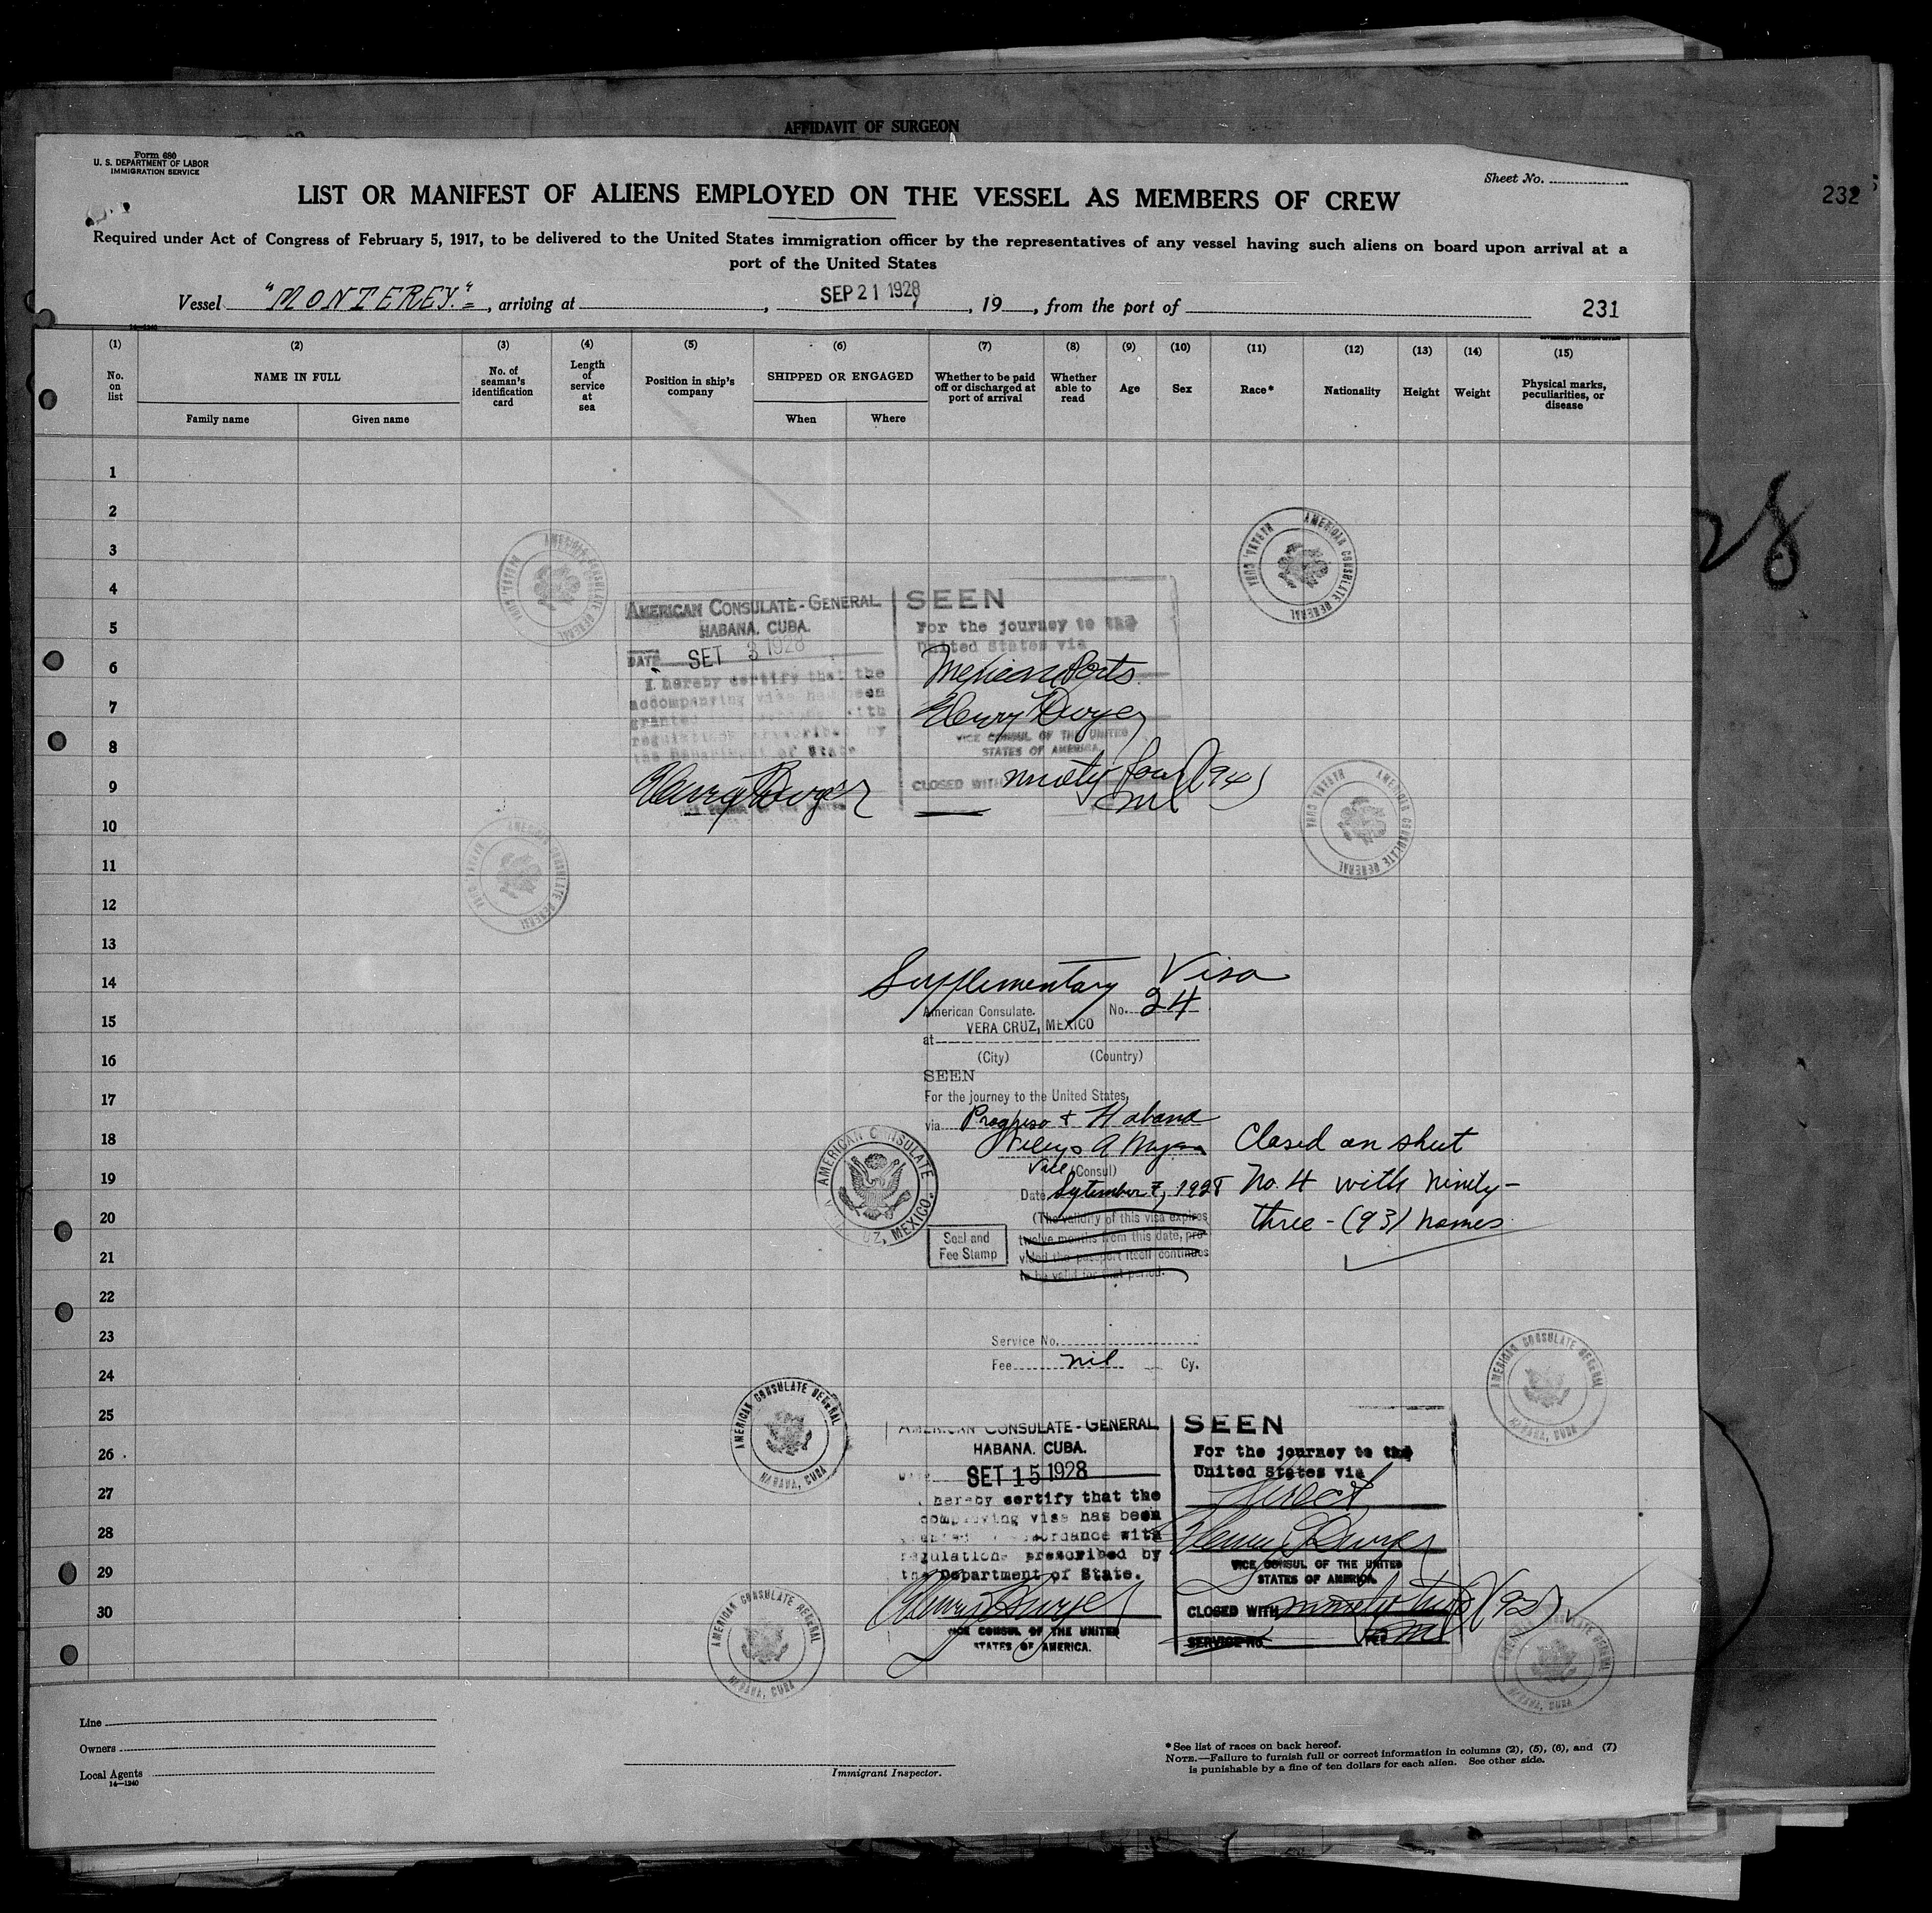 AFFIDAVIT OF SURGEON
Form 680
U. S. DEPARTMENT OF LABOR
IMMIGRATION SERVICE
Sheet No.
232
LIST OR MANIFEST OF ALIENS EMPLOYED ON THE VESSEL AS MEMBERS OF CREW
Required under Act of Congress of February 5, 1917, to be delivered to the United States immigration officer by the representatives of any vessel having such aliens on board upon arrival at a
port of the United States
Vessel "MONTEREY." , arriving at , SEP 21 1928 , 19 , from the port of 231
14—1240
(1) (2) (3) (4) (5) (6) (7) (8) (9) (10) (11) (12) (13) (14) (15)
No. on list
NAME IN FULL
Family name Given name
No. of seaman's identification card
Length of service at sea
Position in ship's company
SHIPPED OR ENGAGED
When Where
Whether to be paid off or discharged at port of arrival
Whether able to read
Age
Sex
Race*
Nationality
Height
Weight
Physical marks, peculiarities, or disease
1
2
3
4
5
6
7
8
9
10
11
12
13
14
15
16
17
18
19
20
21
22
23
24
25
26
27
28
29
30
28
AMERICAN CONSULATE GENERAL HABANA, CUBA
AMERICAN CONSULATE GENERAL HABANA, CUBA
AMERICAN CONSULATE-GENERAL
HABANA, CUBA.
DATE SET 3 1928
I hereby certify that the
accompanying visa has been
granted with
regulations prescribed by
the Department of State
Henry Dwyer
SEEN
For the journey to the
United States via
Mexican Ports
Henry Dwyer
VICE CONSUL OF THE UNITED
STATES OF AMERICA
CLOSED WITH ninety four (94)
nil
AMERICAN CONSULATE GENERAL HABANA, CUBA
AMERICAN CONSULATE GENERAL HABANA, CUBA
Supplementary Visa
American Consulate. No. 24
VERA CRUZ, MEXICO
at
(City) (Country)
SEEN
For the journey to the United States,
via Progreso & Habana
Vice (Consul)
Date September 7, 1928
(The validity of this visa expires
twelve months from this date, pro-
vided the passport itself continues
to be valid for that period.
Closed on sheet
No. 4 with ninety-
three - (93) names
AMERICAN CONSULATE MEXICO
Seal and
Fee Stamp
Service No.
Fee nil Cy.
AMERICAN CONSULATE GENERAL HABANA, CUBA
AMERICAN CONSULATE GENERAL HABANA, CUBA
AMERICAN CONSULATE-GENERAL
HABANA, CUBA.
SET 15 1928
hereby certify that the
visa has been
accordance with
regulations prescribed by
the Department of State.
Henry Dwyer
VICE CONSUL OF THE UNITED
STATES OF AMERICA.
SEEN
For the journey to the
United States via
direct
Henry Dwyer
VICE CONSUL OF THE UNITED
STATES OF AMERICA
CLOSED WITH ninety two (92)
SERVICE No. FEE nil
AMERICAN CONSULATE GENERAL HABANA, CUBA
AMERICAN CONSULATE GENERAL HABANA, CUBA
Line
Owners
Local Agents
14—1240
Immigrant Inspector.
*See list of races on back hereof.
NOTE.—Failure to furnish full or correct information in columns (2), (5), (6), and (7)
is punishable by a fine of ten dollars for each alien. See other side.